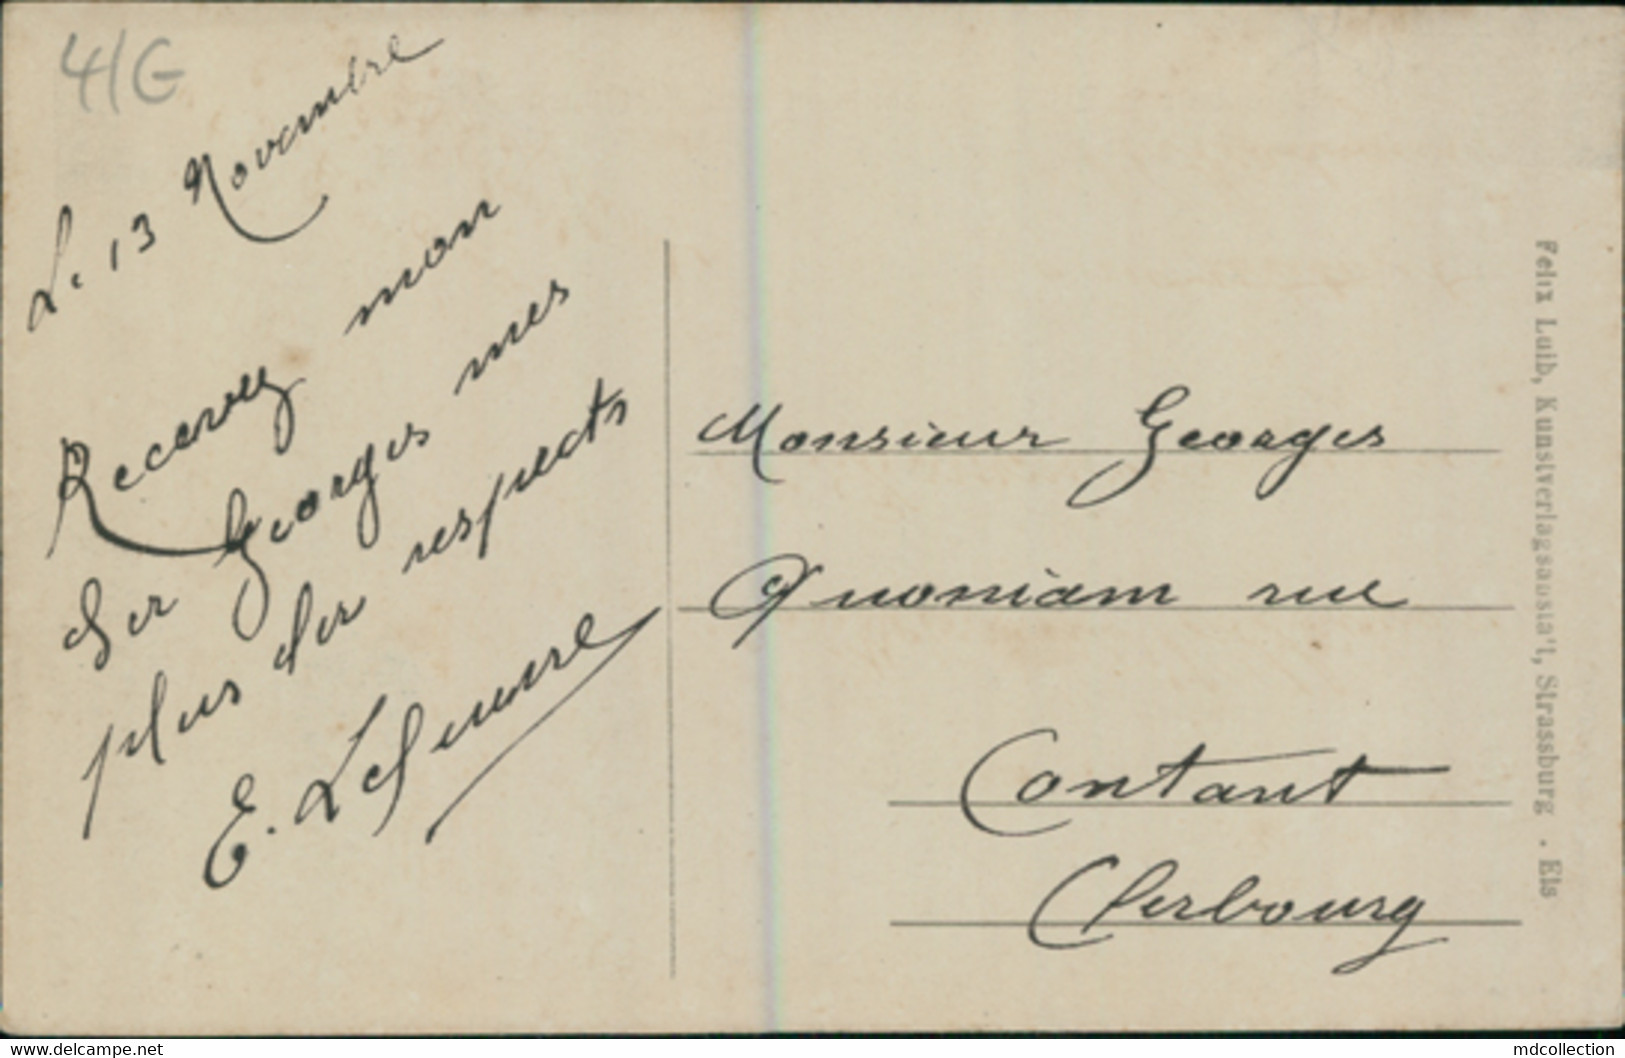 4/G
Le 13 Novembre
Recevez mon
cher Georges mes
plus cher respects
E.
Monsieur Georges
Quoniam rue
Contant
Cherbourg
Felix Luib, Kunstverlagsansta't, Strassburg . Els
www.delcampe.net
mdcollection